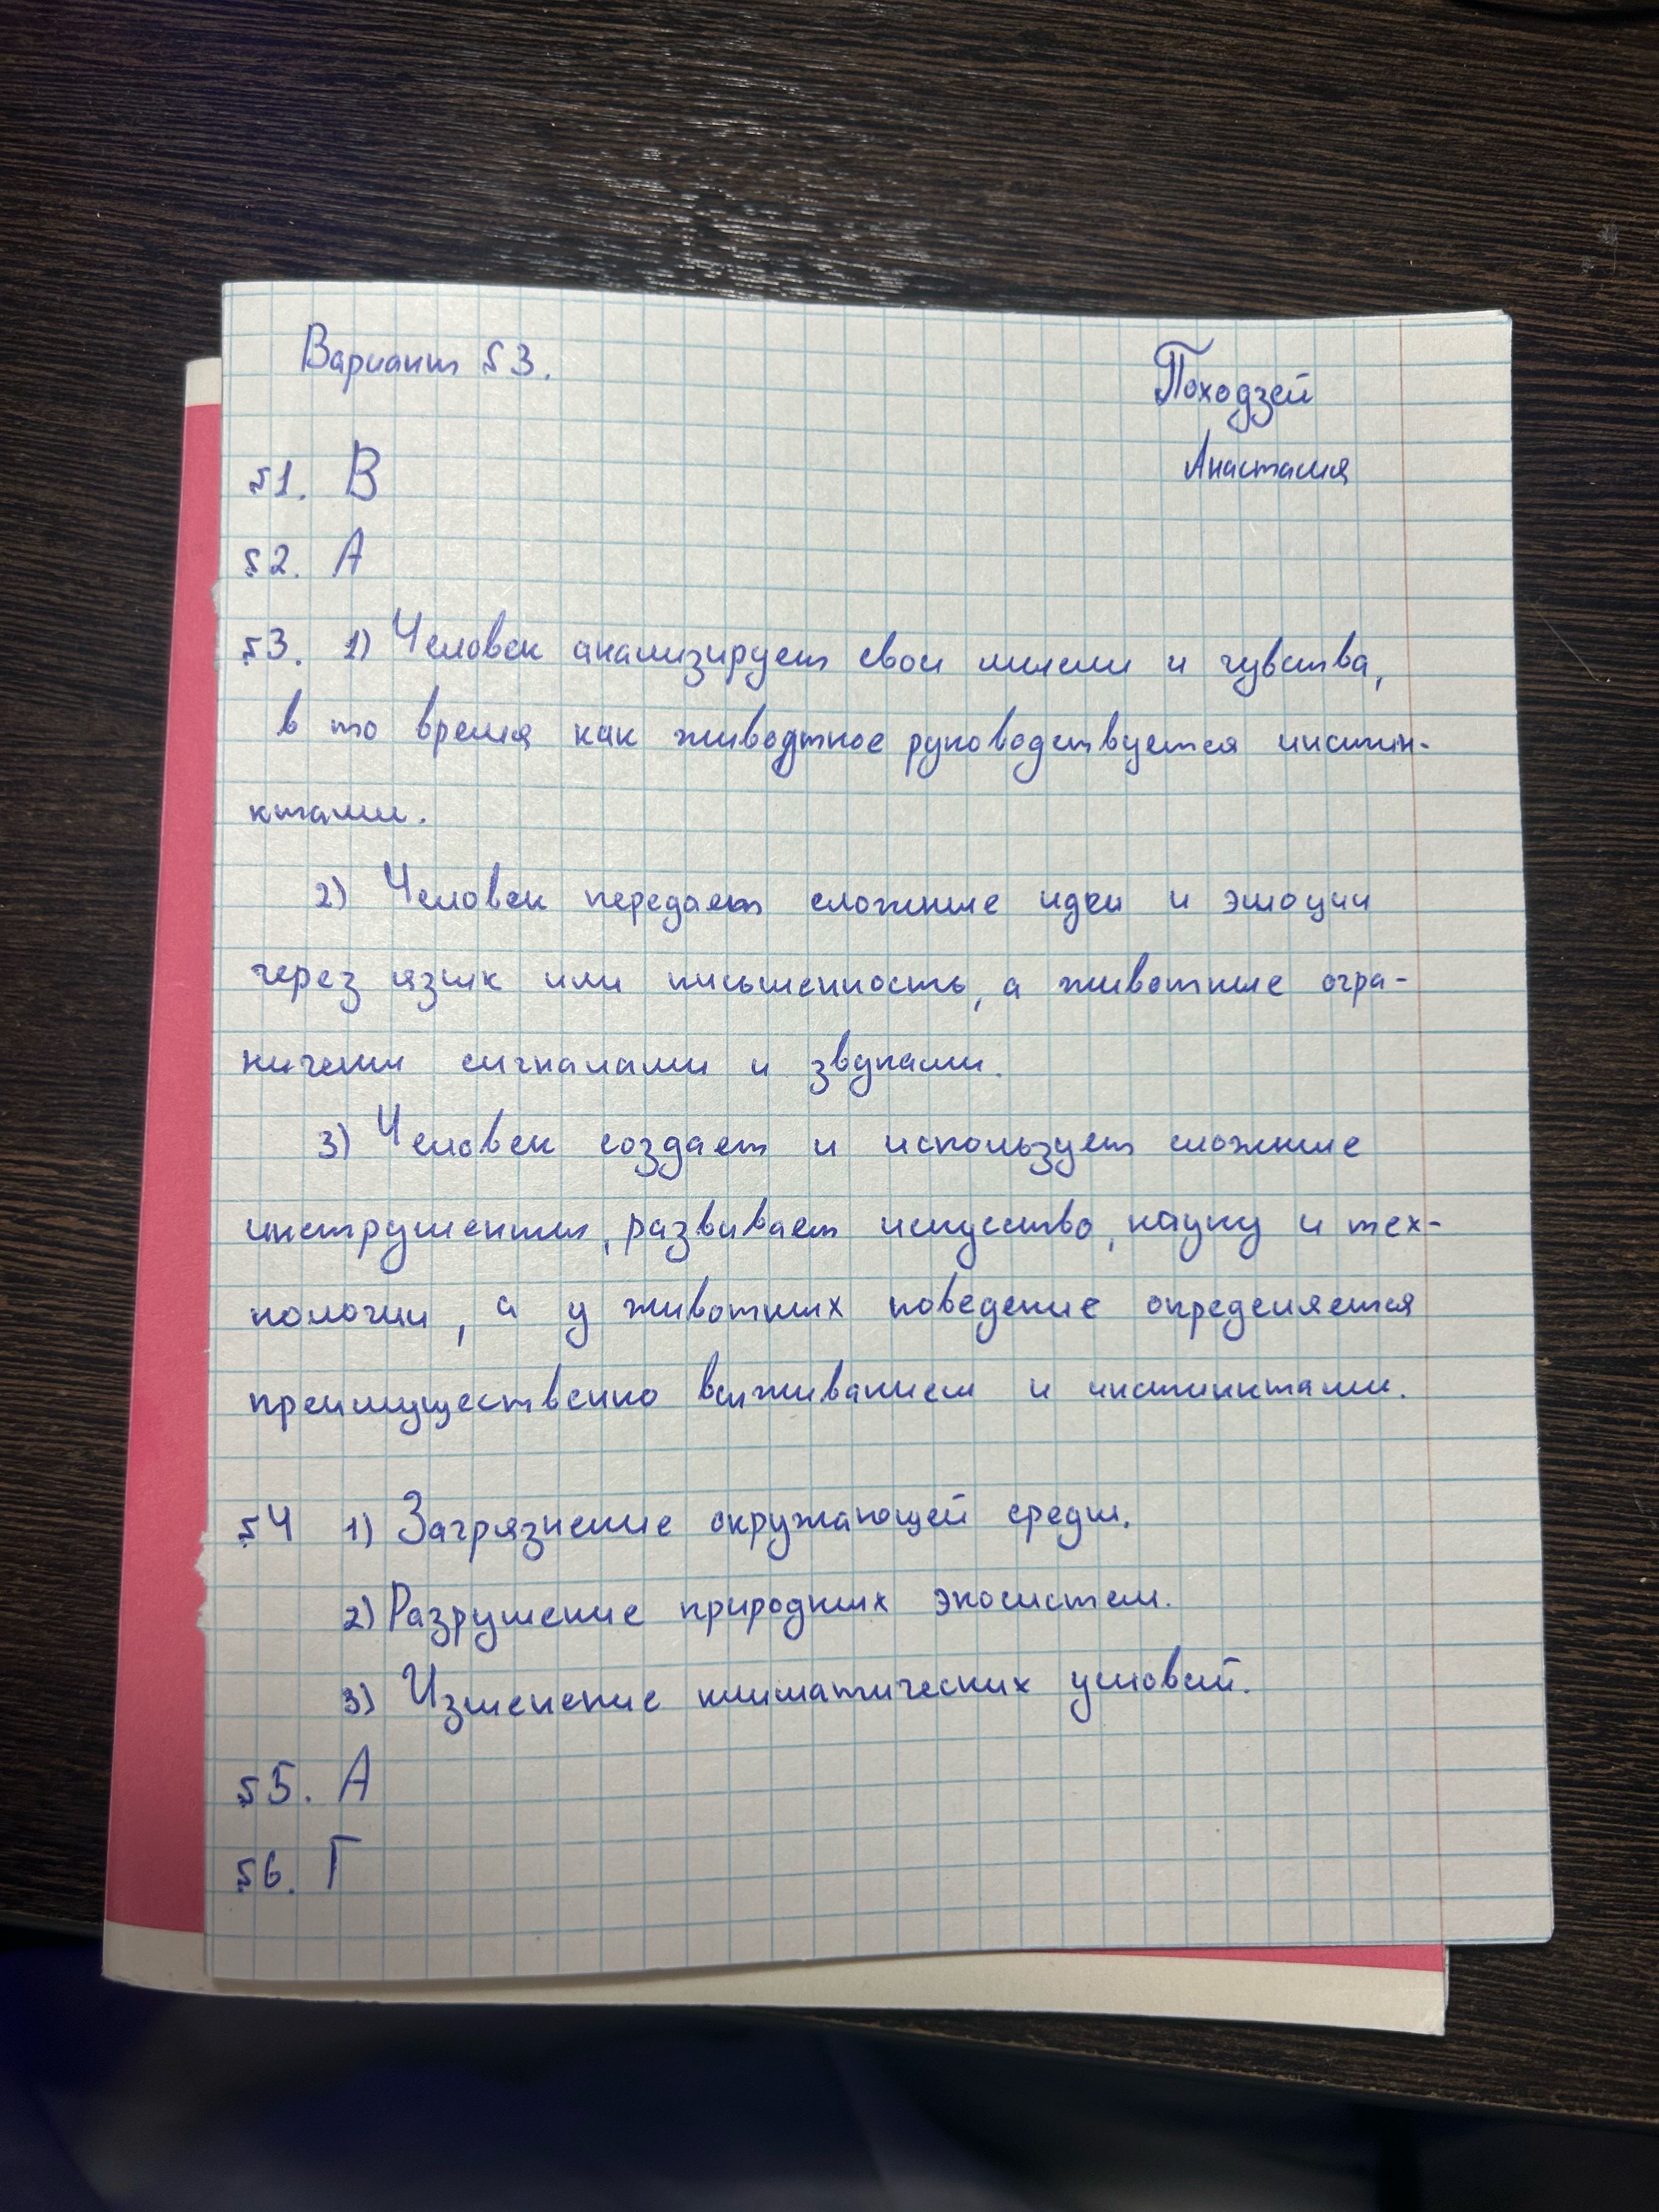 Вариант §3.
Походзей
Анастасия
§1. В
§2. А
§3. 1) Человек анализирует свои мысли и чувства,
в то время как животное руководствуется инстин-
ктами.
2) Человек передает сложные идеи и эмоции
через язык или письменность, а животные огра-
ничены сигналами и звуками.
3) Человек создает и использует сложные
инструменты, развивает искусство, науку и тех-
нологии, а у животных поведение определяется
преимущественно выживанием и инстинктами.
§4 1) Загрязнение окружающей среды.
2) Разрушение природных экосистем.
3) Изменение климатических условий.
§5. А
§6. Г